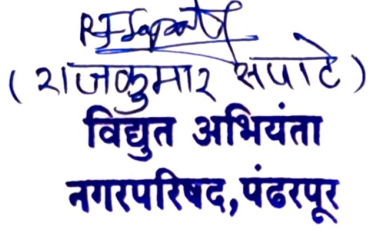 (राजकुमार सपाटे)
विद्युत अभियंता
नगरपरिषद, पंढरपूर